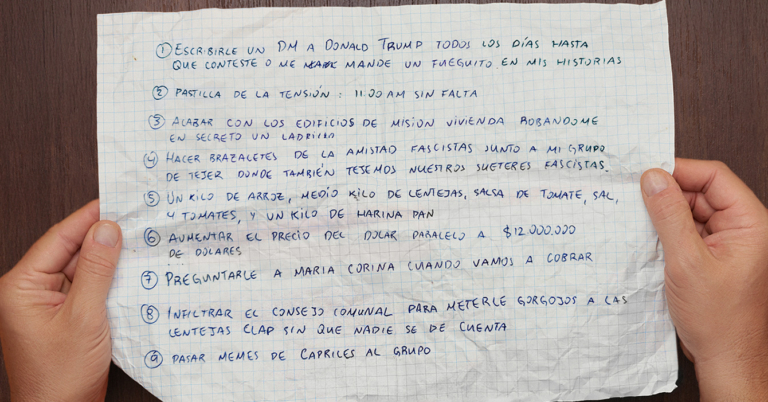 ① ESCRIBIRLE UN DM A DONALD TRUMP TODOS LOS DÍAS HASTA
QUE CONTESTE O ME MANDE UN FUEGUITO EN MIS HISTORIAS
② PASTILLA DE LA TENSIÓN: 11:00 AM SIN FALTA
③ ACABAR CON LOS EDIFICIOS DE MISIÓN VIVIENDA ROBANDOME
EN SECRETO UN LADRILLO
④ HACER BRAZALETES DE LA AMISTAD FASCISTAS JUNTO A MI GRUPO
DE TEJER DONDE TAMBIÉN TEJEMOS NUESTROS SUETERES FASCISTAS.
⑤ UN KILO DE ARROZ, MEDIO KILO DE LENTEJAS, SALSA DE TOMATE, SAL,
4 TOMATES, Y UN KILO DE HARINA PAN
⑥ AUMENTAR EL PRECIO DEL DOLAR PARALELO A $12.000.000
DE DOLARES
⑦ PREGUNTARLE A MARIA CORINA CUANDO VAMOS A COBRAR
⑧ INFILTRAR EL CONSEJO COMUNAL PARA METERLE GORGOJOS A LAS
LENTEJAS CLAP SIN QUE NADIE SE DE CUENTA
⑨ PASAR MEMES DE CAPRILES AL GRUPO